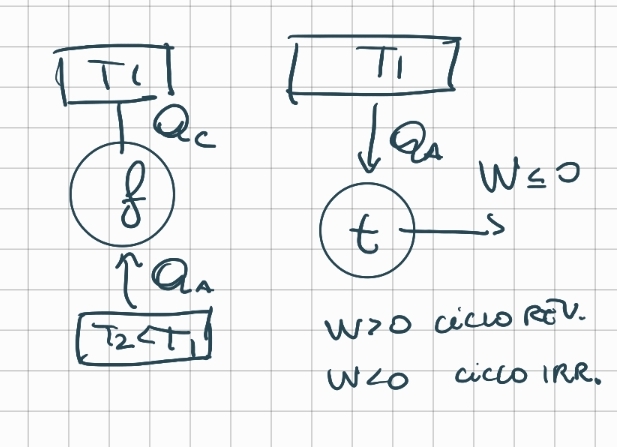 T1
Qc
f
QA
T2<T1
T1
QA
W≤0
t
W>0 CICLO REV.
W<0 CICLO IRR.